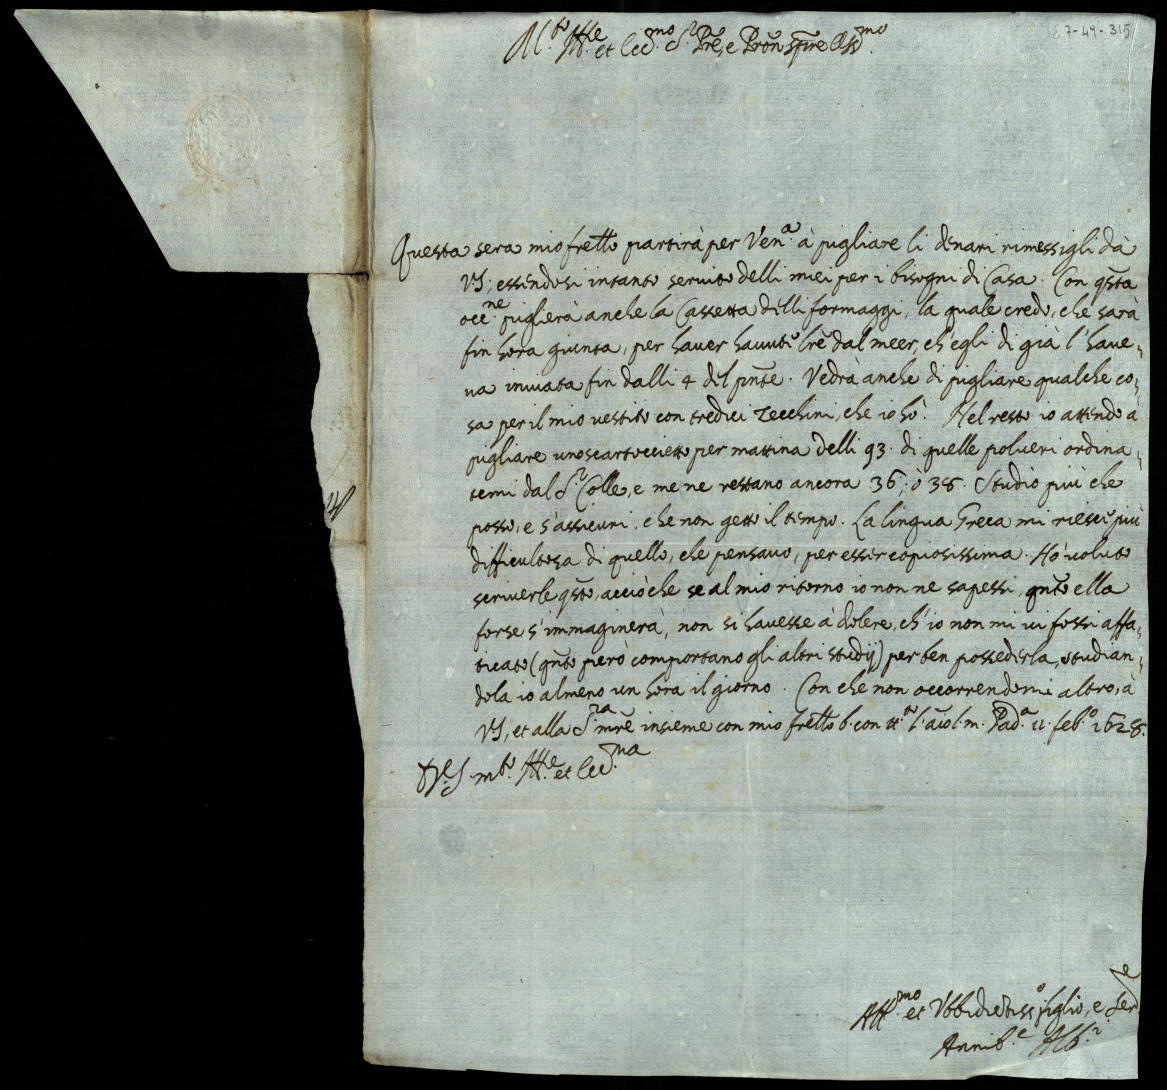 87-49-315
M.to Ill.e et Ecc.mo S.r Prē, e Proñ spre Oss.mo
Questa sera mio frello partirà per Ven.a à pigliare li denari rimessigli dà
VS; essendosi intanto seruito delli miei per i bisogni di Casa. Con q̃sta
occ.ne piglierà anche la Cassetta delli formaggi, la quale credo, che sarà
fin hora giunta, per hauer hauuto lrē dal meer, ch'egli di già l'haue-
ua inuiata fin dalli 4 del pñte. Vedrà anche di pigliare qualche co-
sa per il mio uestito con tredici zecchini, che io hò. Nel resto io attendo à
pigliare uno scartoccietto per mattina delli 93. di quelle polueri ordina-
temi dal S.r Colle, e me ne restano ancora 36, ò 38. Studio più che
posso, e s'assicuri, che non getto il tempo. La lingua Greca mi riesce più
difficultosa di quello, che pensauo, per esser copiosissima. Hò uoluto
scriuerle q̃sto, acciò che se al mio ritorno io non ne sapessi, q̃nto ella
forse s'immaginerà, non si hauesse à dolere, ch'io non mi ci fossi affa-
ticato (q̃nto però comportano gli altri studij) per ben possederla, studian-
dola io almeno un hora il giorno. Con che non occorrendomi altro, à
VS, et alla S.ra mrē insieme con mio frello b. con tt.o l'aīo l. m. Pad.a 11. feb.o 1628.
D VS. m.to Ill.e et Ecc.ma
Aff.mo et Vbbidietiss.o figlio, e Ser.re
Annib.e Alb.i